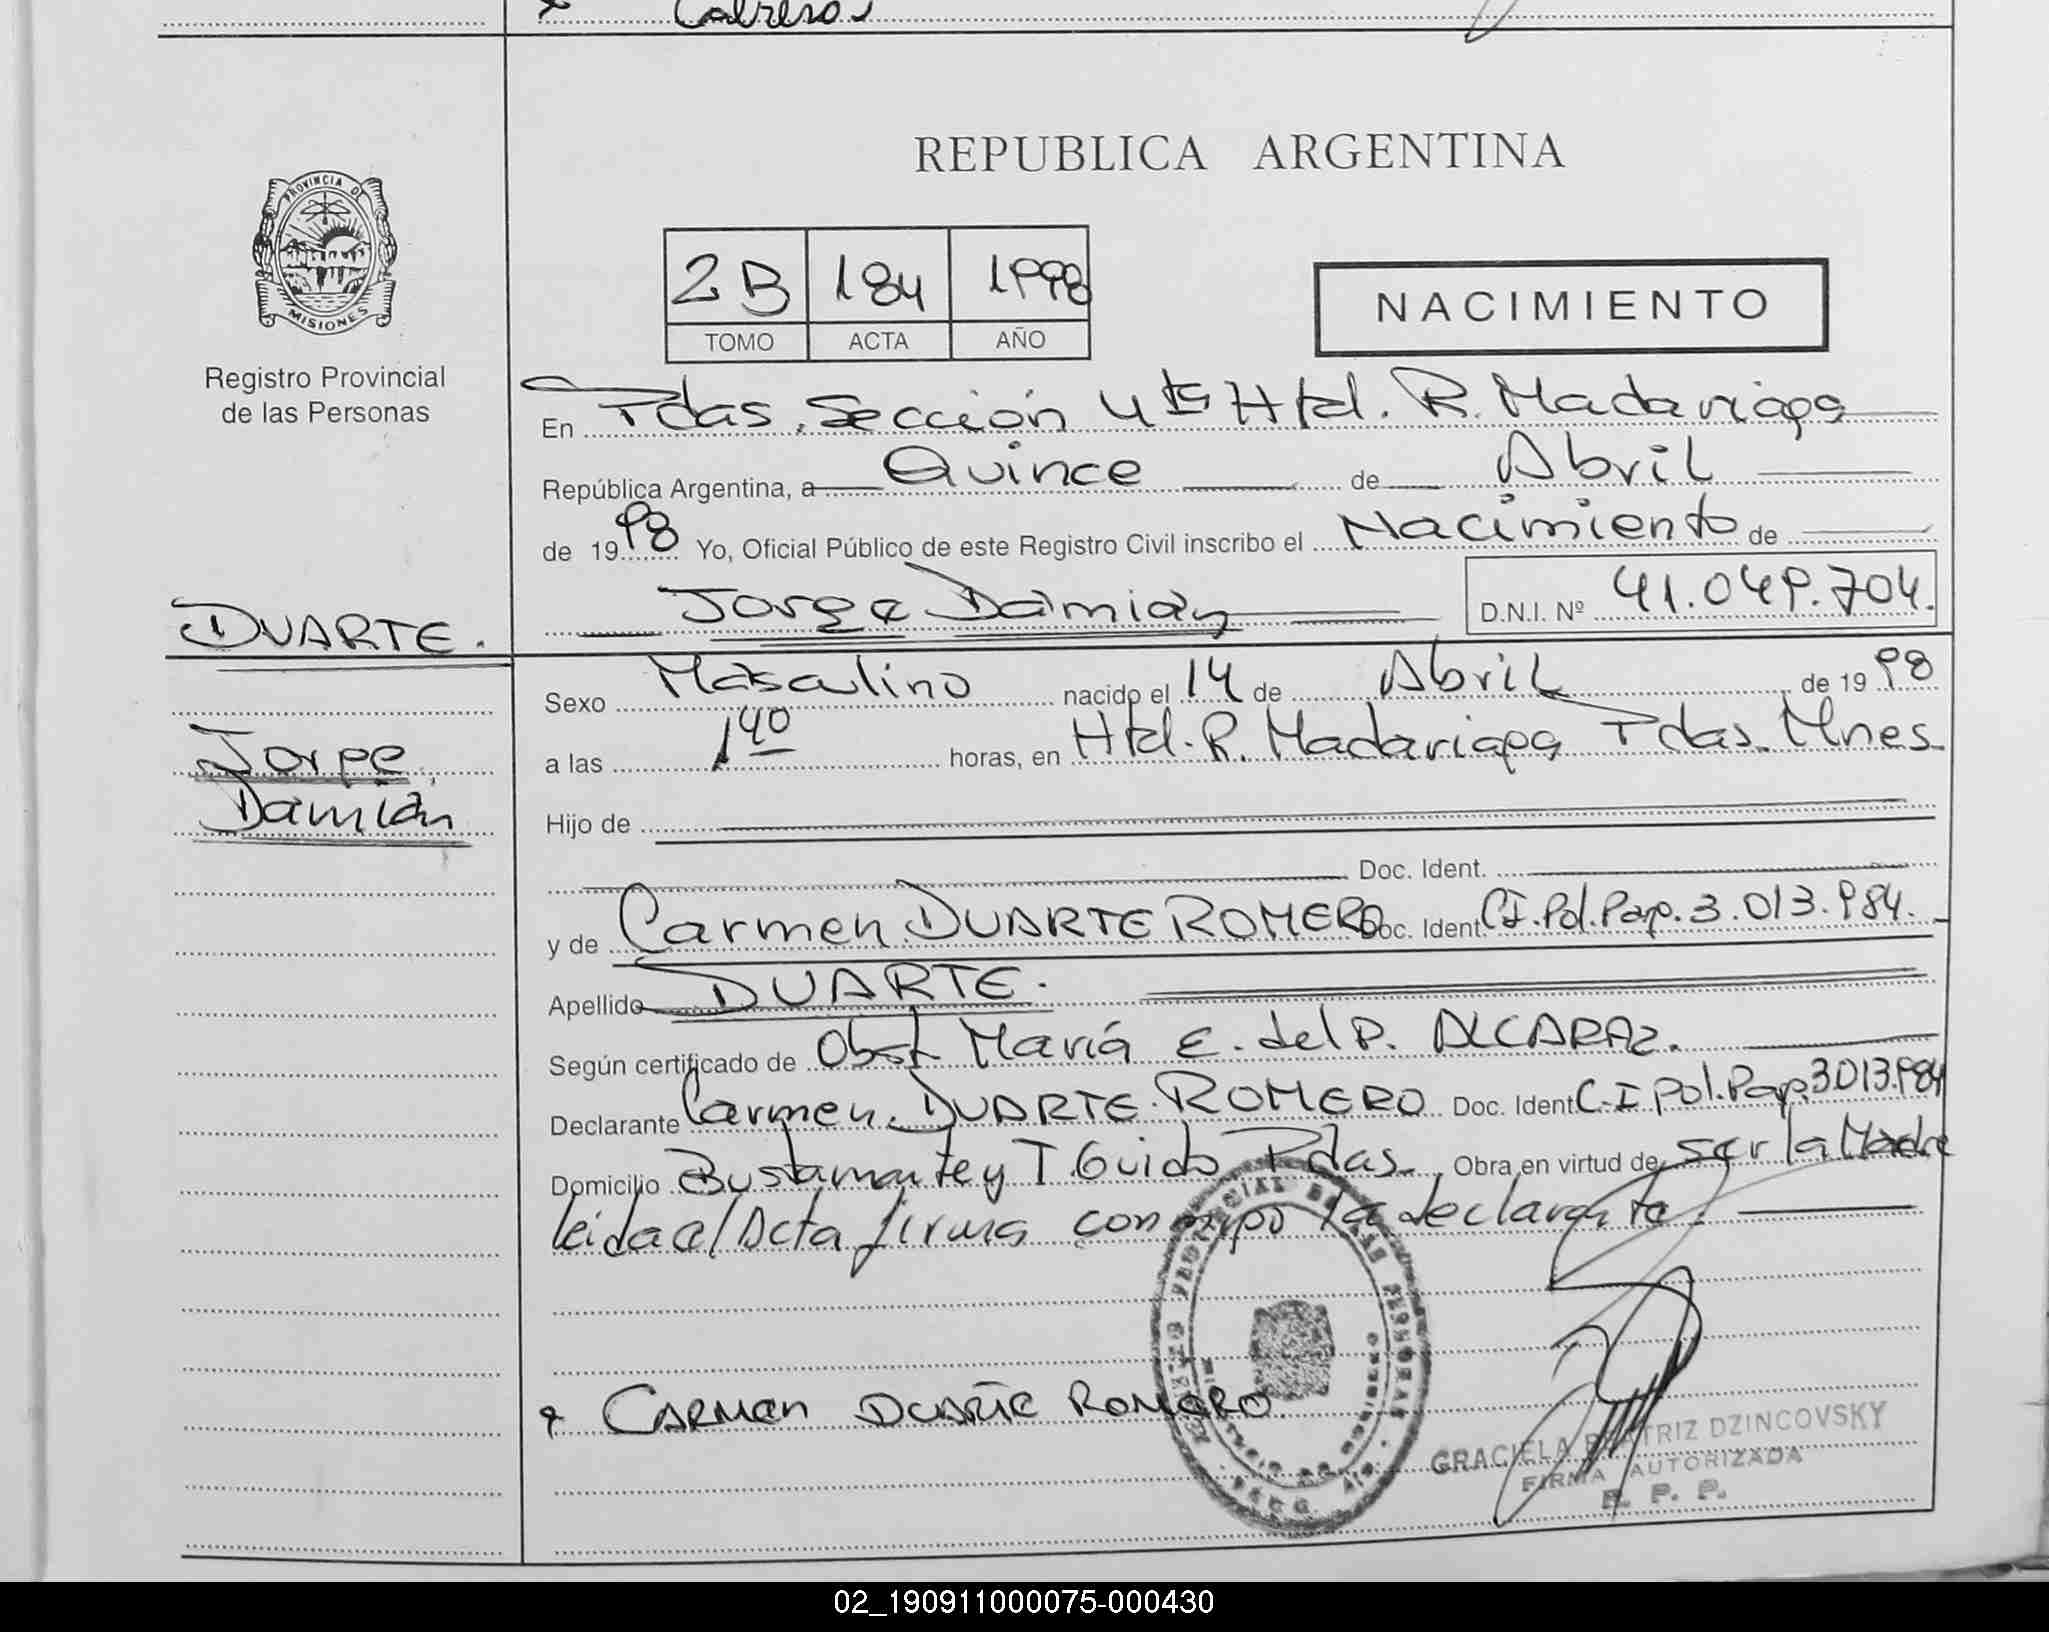 Cabrero
REPUBLICA ARGENTINA
PROVINCIA DE
MISIONES
Registro Provincial
de las Personas
2B 184 1998
TOMO ACTA AÑO
NACIMIENTO
En Pdas, Sección 4ta Htal. R. Madariaga
República Argentina, a Quince de Abril
de 1998 Yo, Oficial Público de este Registro Civil inscribo el Nacimiento de
Jorge Damián D.N.I. Nº 41.049.704.
DUARTE.
Jorge
Damián
Sexo Masculino nacido el 14 de Abril de 1998
a las 1 40 horas, en Htal. R. Madariaga Pdas. Mnes.
Hijo de
Doc. Ident.
y de Carmen DUARTE ROMERO Doc. Ident C.I. Pol. Pap. 3.013.984.
Apellido DUARTE.
Según certificado de Obst. María E. del P. ALCARAZ.
Declarante Carmen DUARTE ROMERO Doc. Ident C.I Pol. Pap. 3.013.984
Domicilio Bustamante y T. Guido Pdas. Obra en virtud de ser la Madre
leida el Acta firma conmigo la declarante.
CARMEN DUARTE ROMERO
GRACIELA BEATRIZ DZINCOVSKY
FIRMA AUTORIZADA
R. P. P.
02_190911000075-000430